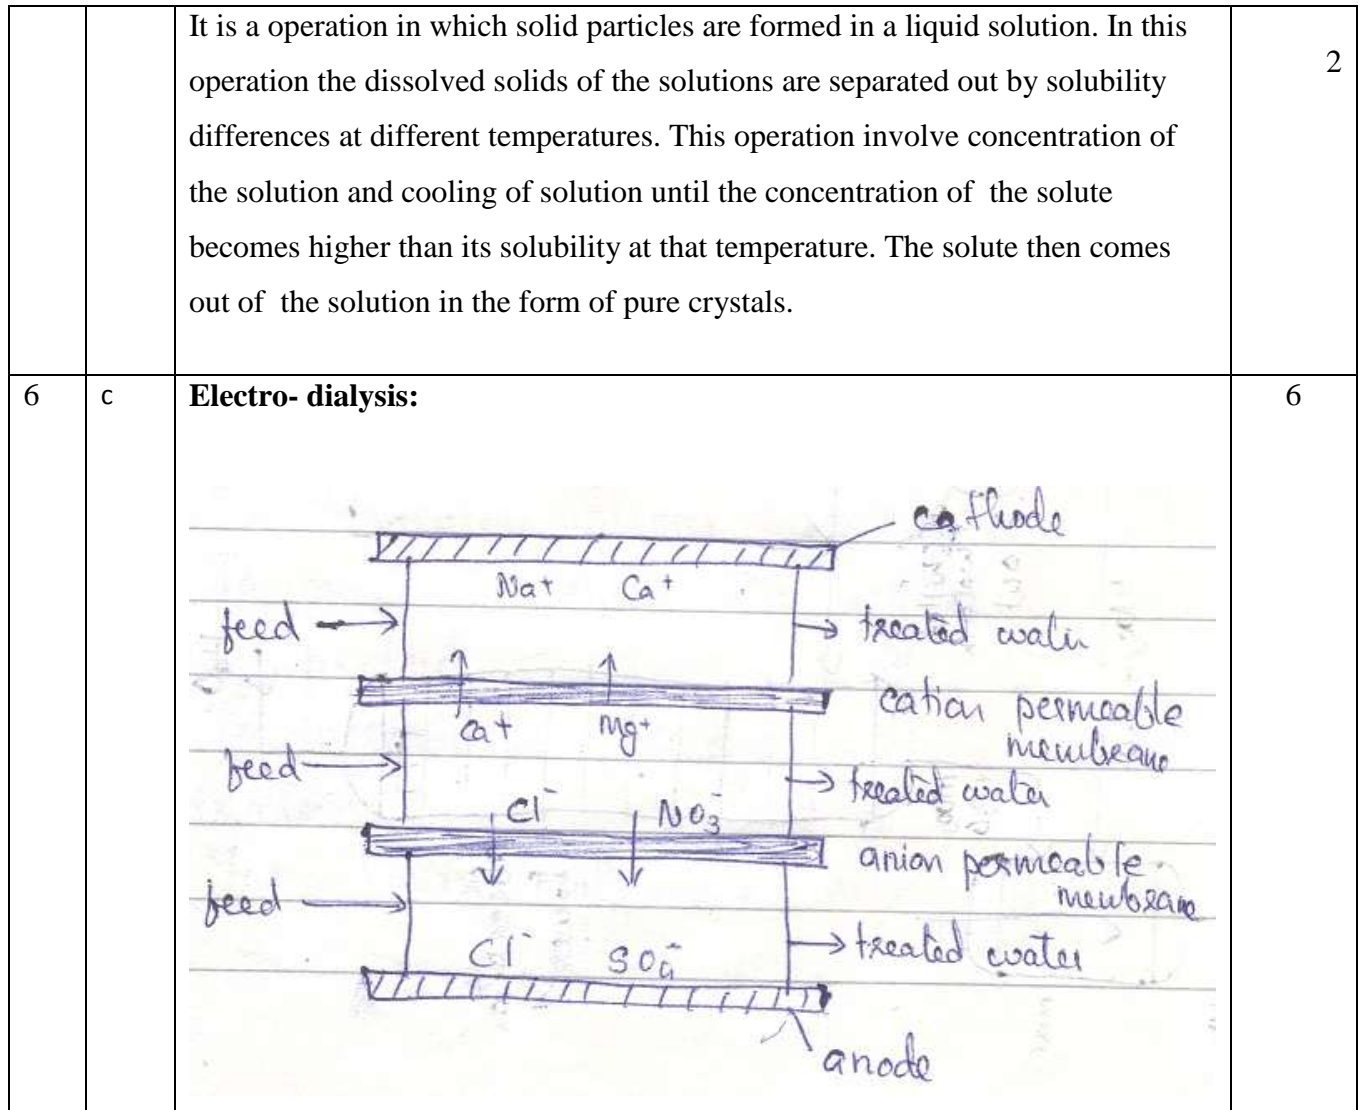 It is a operation in which solid particles are formed in a liquid solution. In this
operation the dissolved solids of the solutions are separated out by solubility
2
differences at different temperatures. This operation involve concentration of
the solution and cooling of solution until the concentration of the solute
becomes higher than its solubility at that temperature. The solute then comes
out of the solution in the form of pure crystals.
6 c Electro- dialysis: 6
cathode
Na+ Ca+
feed treated water
cation permeable
membrane
Ca+ Mg+
feed treated water
Cl- NO3-
anion permeable
membrane
feed treated water
Cl- SO4-
anode